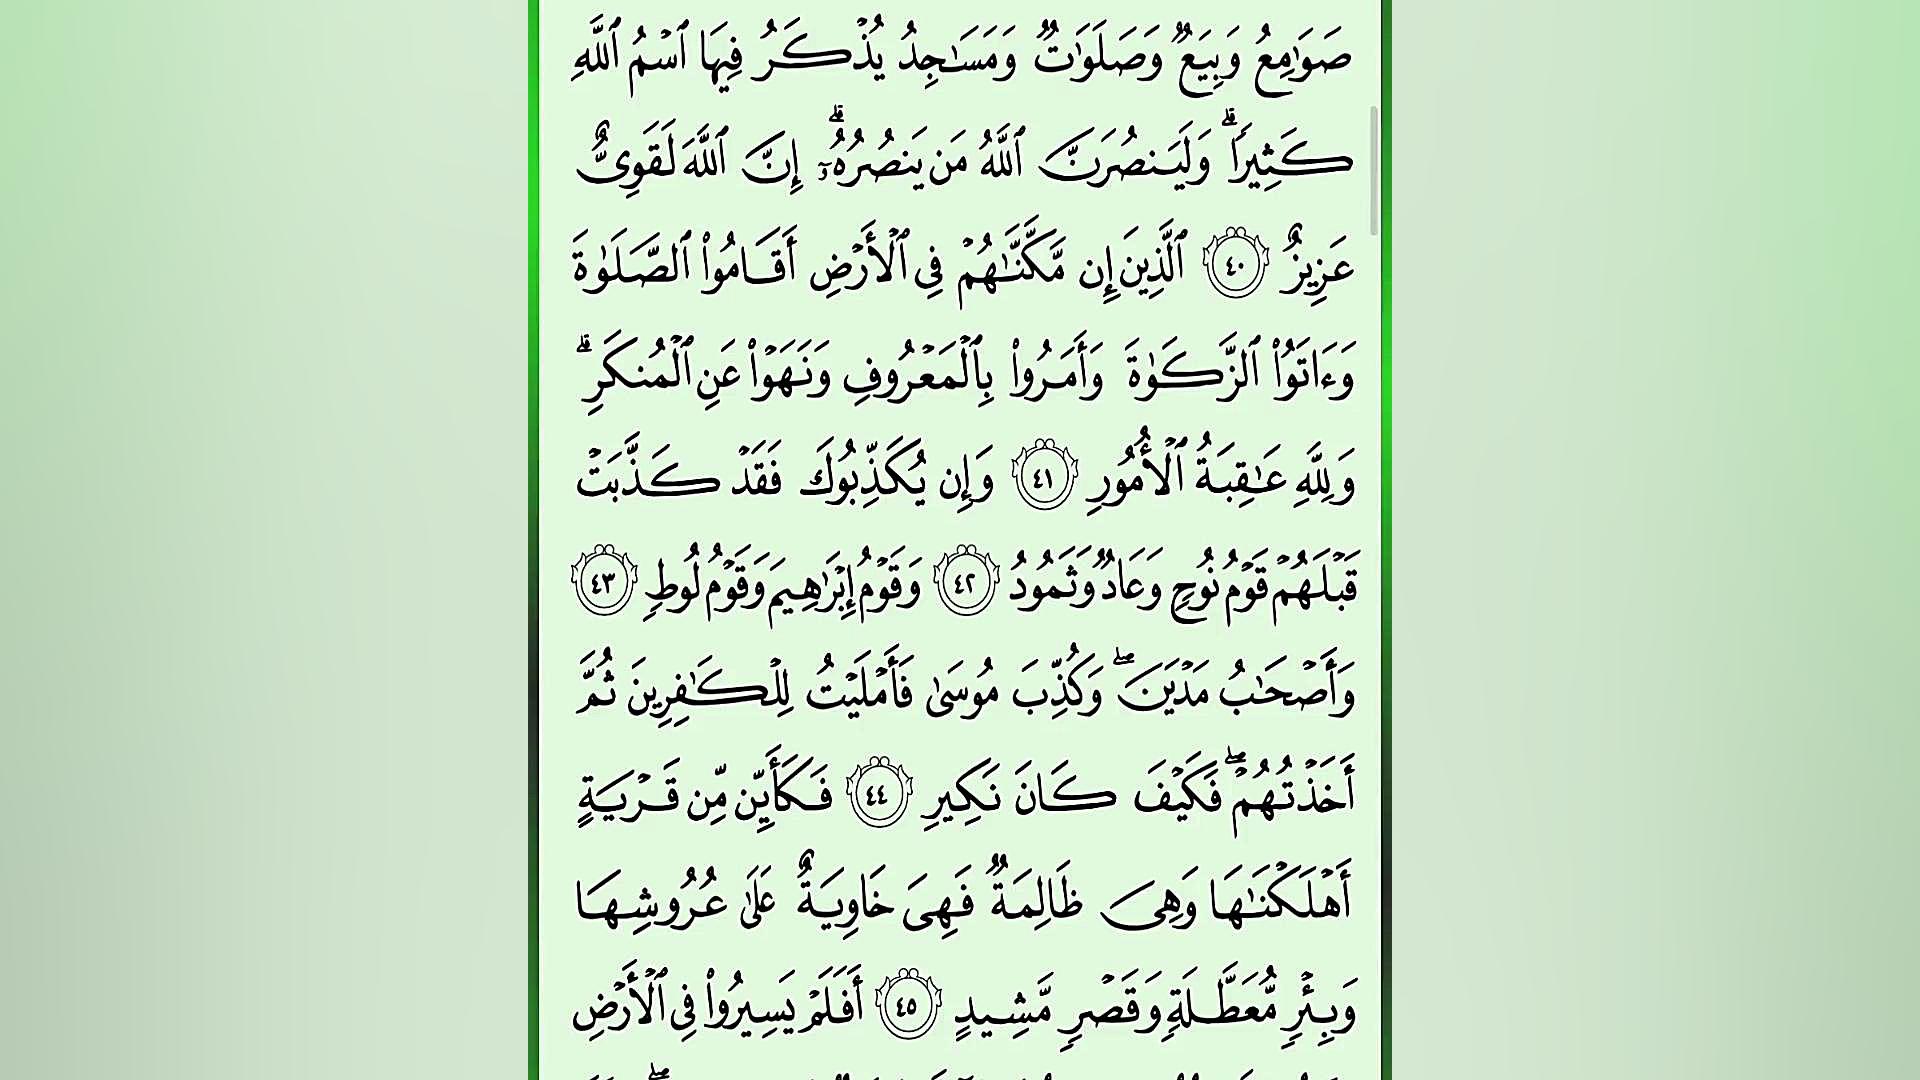 صَوَٰمِعُ وَبِيَعٌ وَصَلَوَٰتٌ وَمَسَـٰجِدُ يُذْكَرُ فِيهَا ٱسْمُ ٱللَّهِ
كَثِيرًا ۗ وَلَيَنصُرَنَّ ٱللَّهُ مَن يَنصُرُهُۥٓ ۗ إِنَّ ٱللَّهَ لَقَوِىٌّ
عَزِيزٌ ٤٠ ٱلَّذِينَ إِن مَّكَّنَّـٰهُمْ فِى ٱلْأَرْضِ أَقَامُوا۟ ٱلصَّلَوٰةَ
وَءَاتَوُا۟ ٱلزَّكَوٰةَ وَأَمَرُوا۟ بِٱلْمَعْرُوفِ وَنَهَوْا۟ عَنِ ٱلْمُنكَرِ ۗ
وَلِلَّهِ عَـٰقِبَةُ ٱلْأُمُورِ ٤١ وَإِن يُكَذِّبُوكَ فَقَدْ كَذَّبَتْ
قَبْلَهُمْ قَوْمُ نُوحٍ وَعَادٌ وَثَمُودُ ٤٢ وَقَوْمُ إِبْرَٰهِيمَ وَقَوْمُ لُوطٍ ٤٣
وَأَصْحَـٰبُ مَدْيَنَ ۖ وَكُذِّبَ مُوسَىٰ فَأَمْلَيْتُ لِلْكَـٰفِرِينَ ثُمَّ
أَخَذْتُهُمْ ۖ فَكَيْفَ كَانَ نَكِيرِ ٤٤ فَكَأَيِّن مِّن قَرْيَةٍ
أَهْلَكْنَـٰهَا وَهِىَ ظَالِمَةٌ فَهِىَ خَاوِيَةٌ عَلَىٰ عُرُوشِهَا
وَبِئْرٍ مُّعَطَّلَةٍ وَقَصْرٍ مَّشِيدٍ ٤٥ أَفَلَمْ يَسِيرُوا۟ فِى ٱلْأَرْضِ